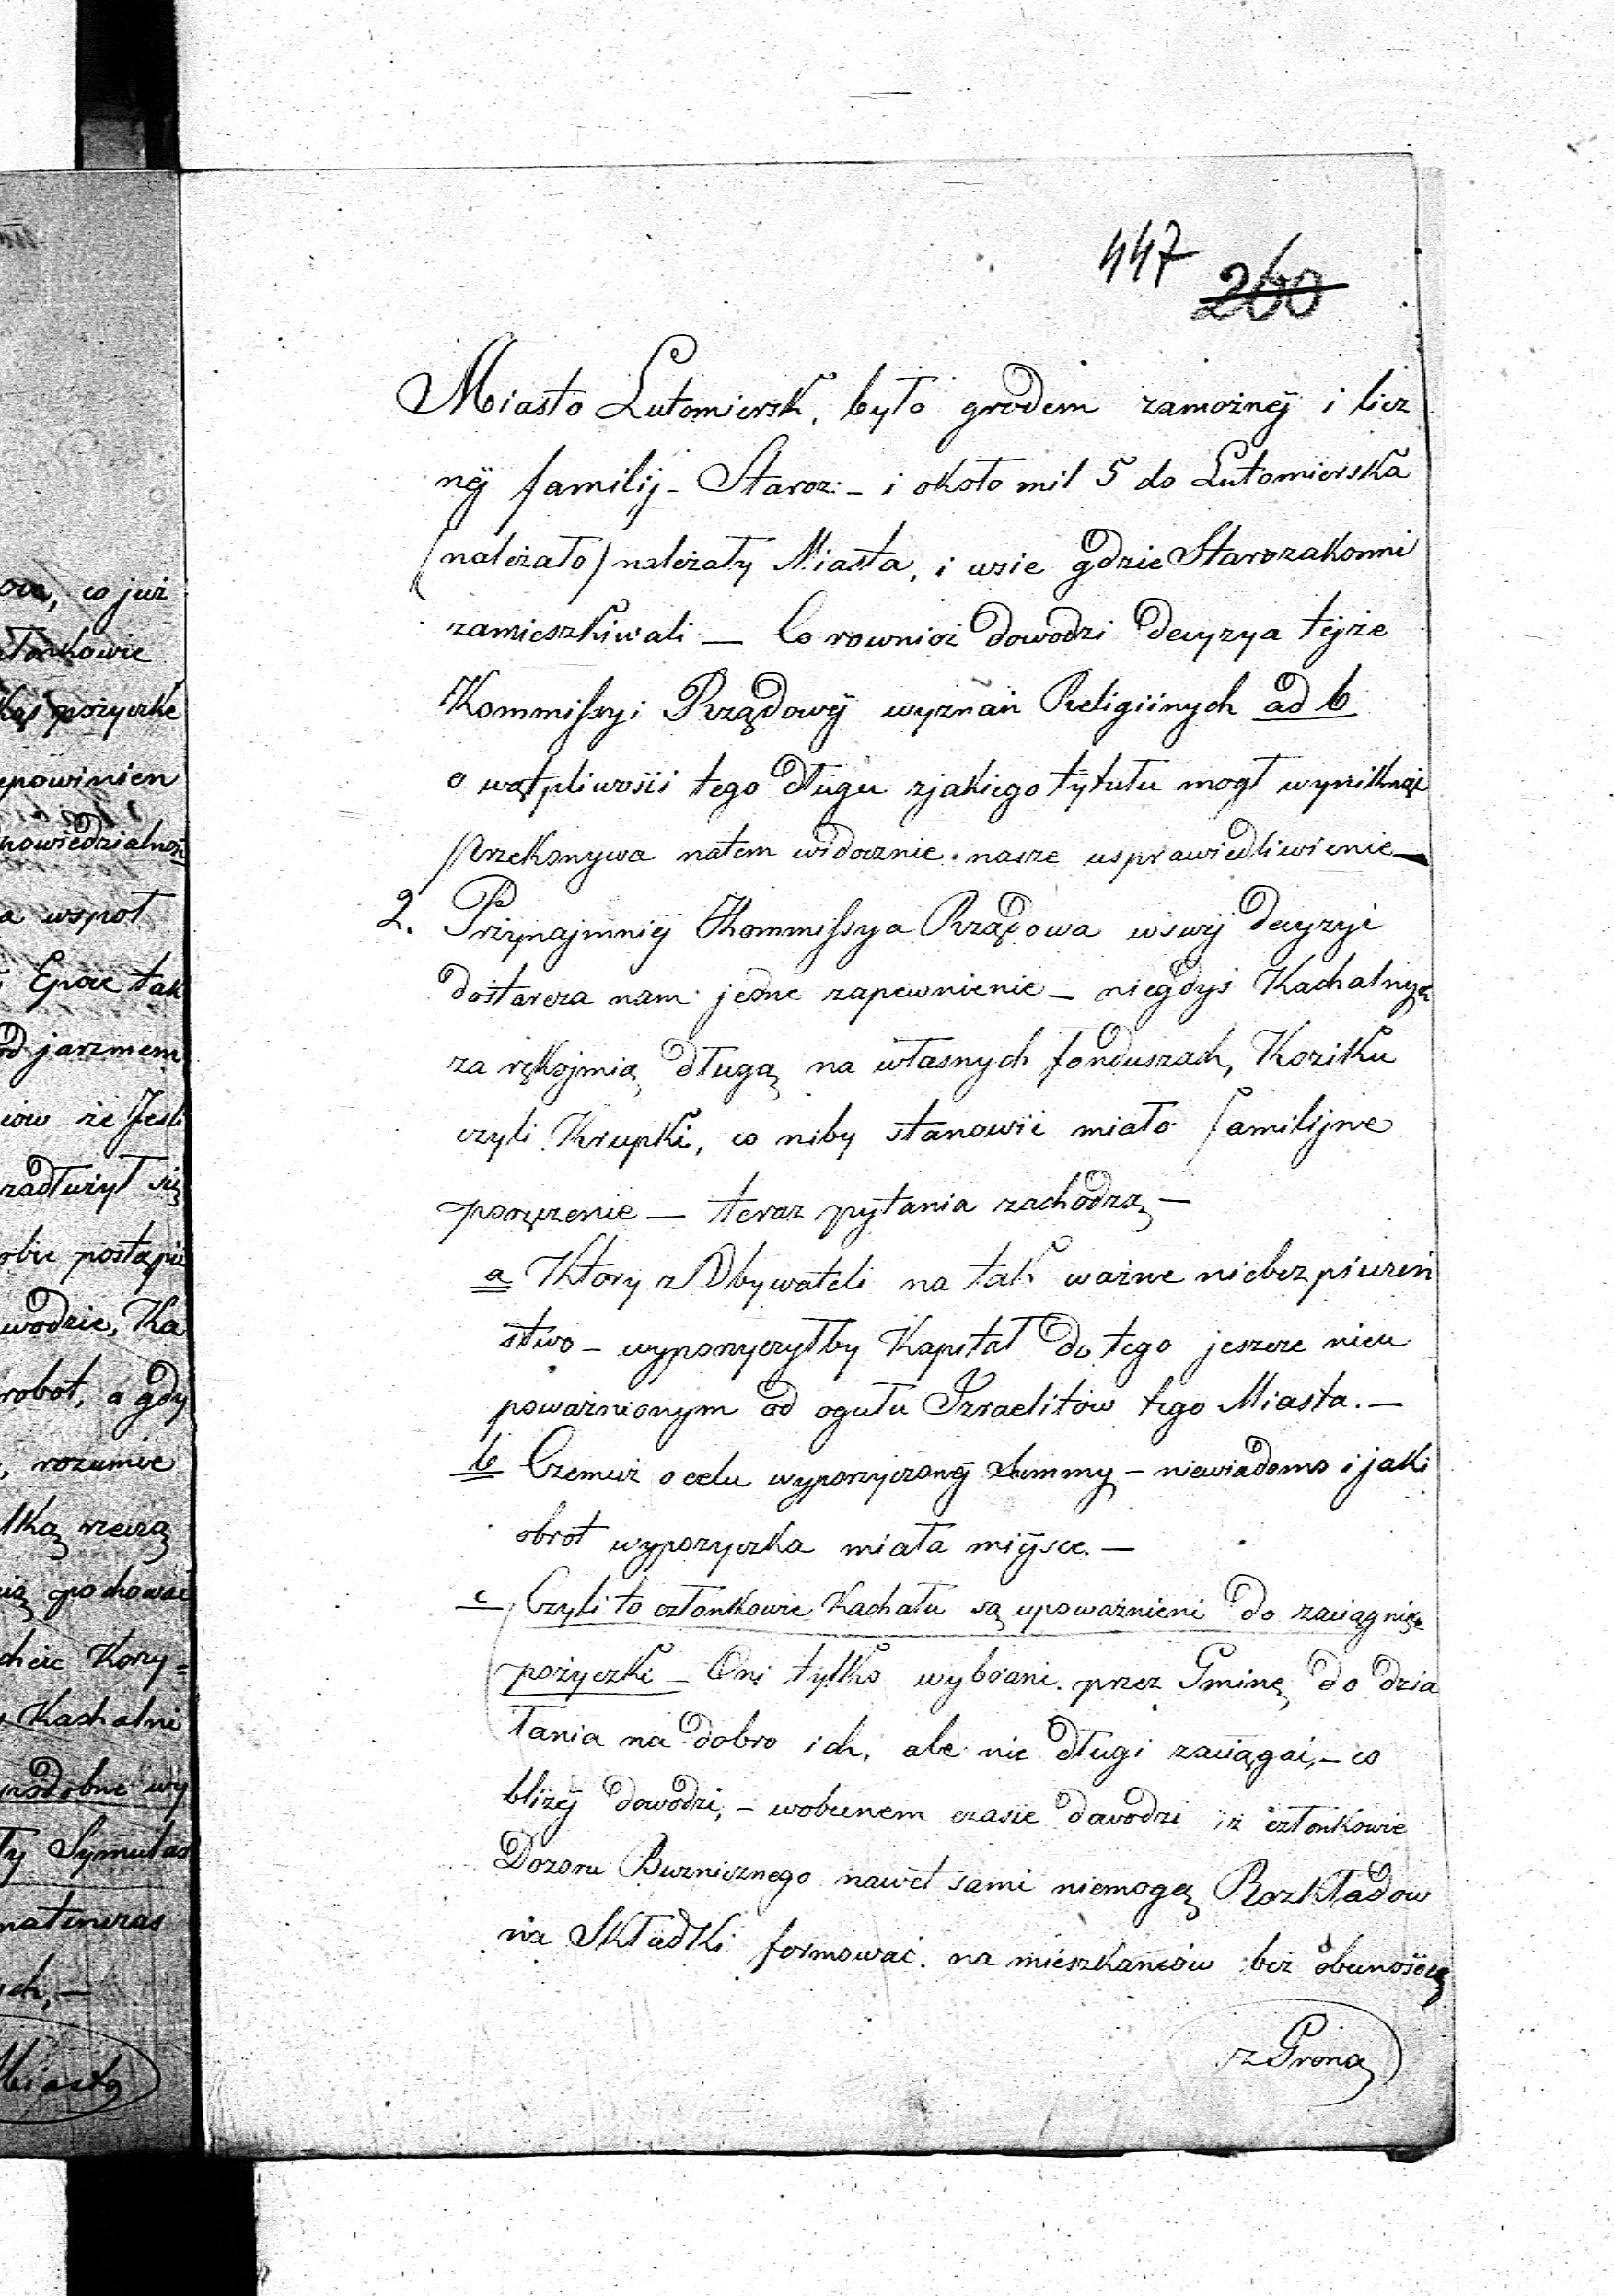 447
260
Miasto Lutomiersk, było grodem zamożnéj i licz
néj familij – Staroz: – i około mil 5 do Lutomierska
(należało) należały Miasta, i wsie gdzie Starozakonni
zamieszkiwali — Co rownież dowodzi decyzya tejże
Kommissyi Rządowéj wyznań Religiinych ad b
o wątpliwości tego długu zjakiego tytułu mogł wyniknąć
przekonywa natem widocznie nasze usprawiedliwienie —
2. Przynajmniéj Kommissya Rządowa wswéj decyzyi
dostarcza nam jedne zapewnienie — niegdyś Kachalnych
za rękojmią długą na własnych funduszach, Kozitku
czyli Krupki, co niby stanowić miało familijne
poręczenie — teraz pytania zachodzą —
a Ktory z Obywateli na tak ważne niebezpieczeń
stwo – wypożyczyłby Kapitał do tego jeszcze nieu
poważnionym od ogułu Izraelitow tego Miasta. —
b Czemuż o celu wypożyczonéj Summy – niewiadomo i jaki
obrot wypozyczka miała miéjsce. —
c Czyli to członkowie Kachału są upoważnieni do zaciągnięc
pożyczki – Oni tylko wybrani przez Gminę do dzia
łania na dobro ich, ale nie długi zaciągać, – co
bliżéj dowodzi, – wobecnem czasie dowodzi iż członkowie
Dozoru Buznicznego nawet sami niemogą Rozkładow
na Składki formować na mieszkańcow bez obecnością
z Grona
ova, co już
członkowie
kąś pożyczkę
epowinien
powiedzialnoś
a wspoł
Epoce tak
od jarzmem
ciow że Jeśli
zadłużył się
obie postąpić
wodzie, Ka
robot, a gdy
, rozumie
lką rzeczą
ią pochować
chcie Korzy=
Kachalni
podobne wy
ły Symulac
natenczas
ich, —
Miasto